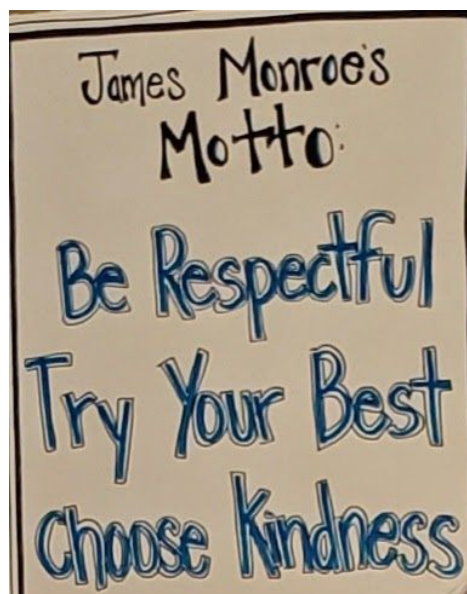 James Monroe's
Motto:
Be Respectful
Try Your Best
Choose Kindness